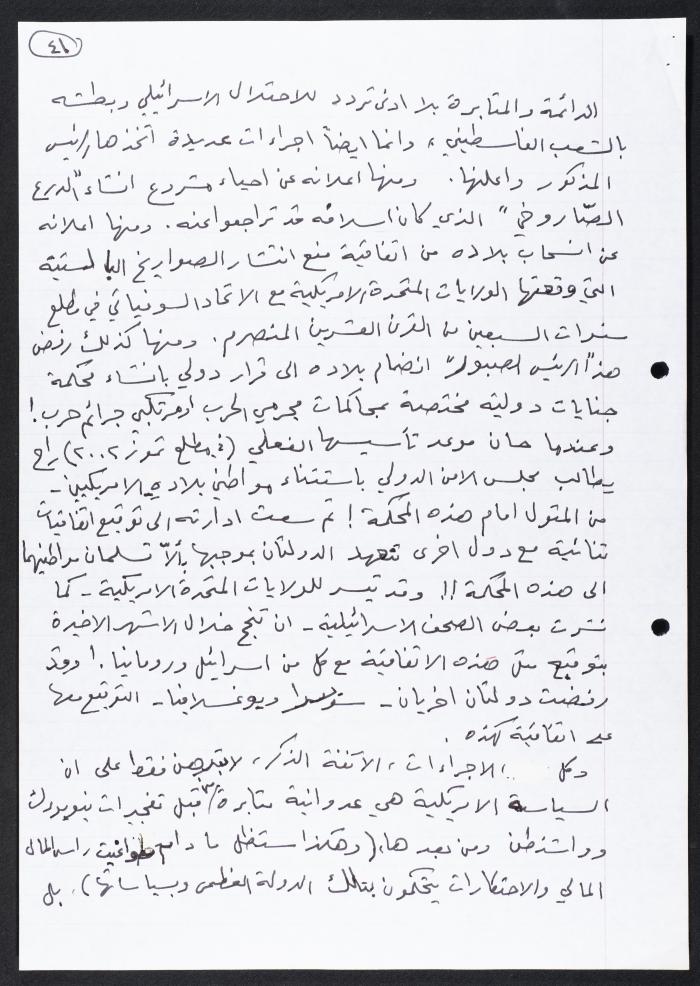 ٤٦
الدائمة والمثابرة بلا ادنى تردد للاحتلال الاسرائيلي وبطشه
بالشعب الفلسطيني، وانما ايضاً اجراءات عديدة اتخذها الرئيس
المذكور واعلنها. ومنها اعلانه عن احياء مشروع انشاء "الدرع
الصّاروخي" الذي كان اسلافه قد تراجعوا عنه. ومنها اعلانه
عن انسحاب بلاده من اتفاقية منع انتشار الصواريخ البالستية
التي وقعتها الولايات المتحدة الامريكية مع الاتحاد السوفياتي في مطلع
سنوات السبعين من القرن العشرين المنصرم. ومنها كذلك رفض
هذا "الرئيس المهبول" انضمام بلاده الى قرار دولي بانشاء محكمة
جنايات دولية مختصة بمحاكمات مجرمي الحرب او مرتكبي جرائم حرب!
وعندما حان موعد تأسيسها الفعلي (في مطلع تموز ٢٠٠٢) راح
يطالب مجلس الامن الدولي باستثناء مواطني بلاده - الامريكيين -
من المثول امام هذه المحكمة! ثم سعت ادارته الى توقيع اتفاقيات
ثنائية مع دول اخرى تتعهد الدولتان بموجبها بألاّ تسلمان مواطنيهما
الى هذه المحكمة!! وقد تيسر للولايات المتحدة الامريكية - كما
نشرت بعض الصحف الاسرائيلية - ان تنجح خلال الاشهر الاخيرة
بتوقيع مثل هذه الاتفاقية مع كل من اسرائيل ورومانيا.! وقد
رفضت دولتان اخريان - سويسرا ويوغسلافيا - التوقيع معها
على اتفاقية كهذه.
وكل الاجراءات، الآنفة الذكر، لا تبرهن فقط على ان
السياسة الامريكية هي عدوانية مثابرة، قبل تفجيرات نيويورك
وواشنطن ومن بعدها، (وهكذا ستظل ما دام طواغيت راس المال
المالي والاحتكارات يتحكمون بتلك الدولة العظمى وبسياساتها)، بل